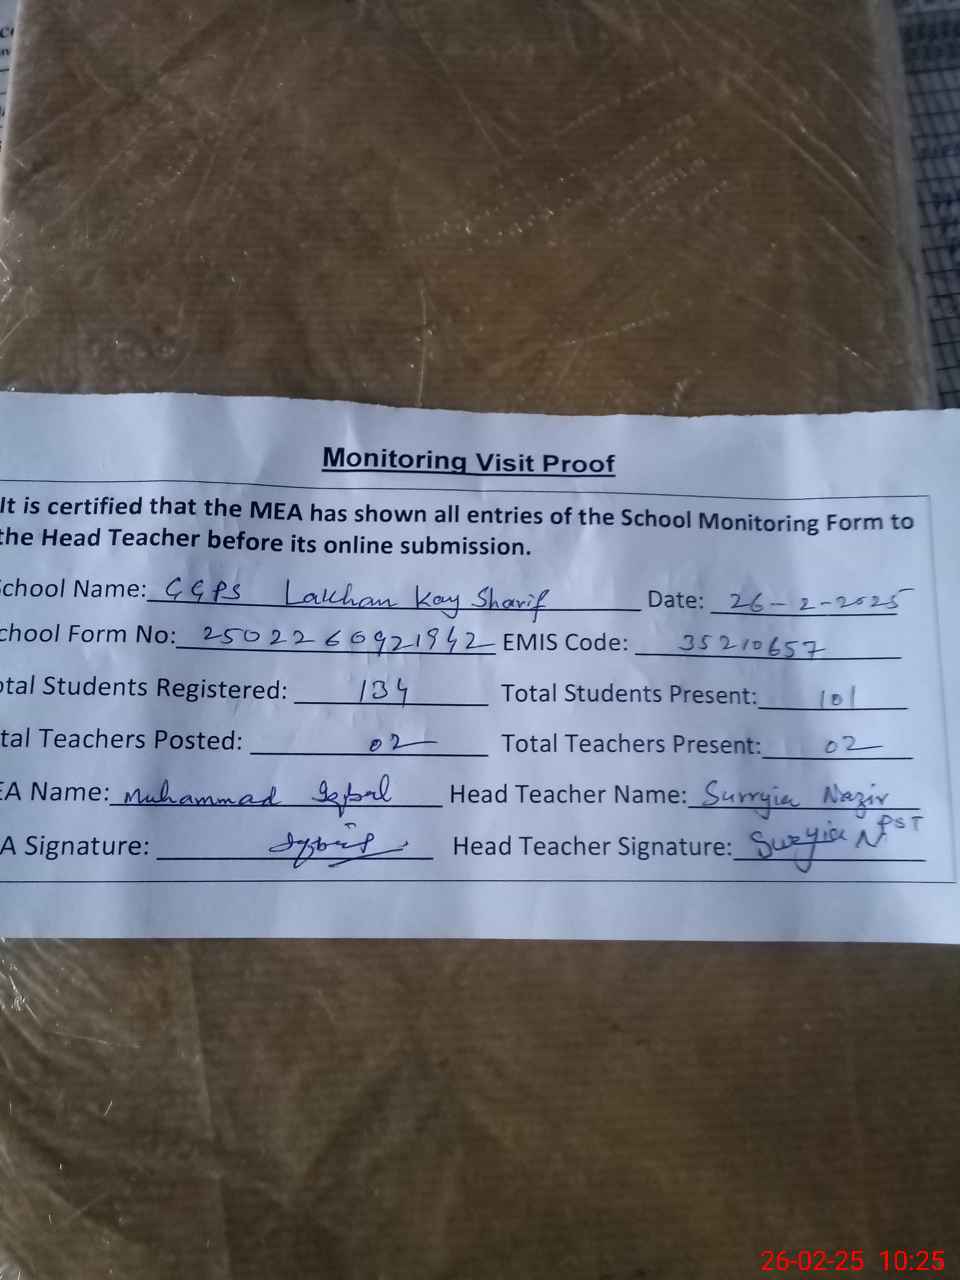 Monitoring Visit Proof
It is certified that the MEA has shown all entries of the School Monitoring Form to
the Head Teacher before its online submission.
chool Name: GGPS Lakhan Kay Sharif Date: 26-2-2025
chool Form No: 25022660921942 EMIS Code: 35210657
otal Students Registered: 134 Total Students Present: 101
tal Teachers Posted: 02 Total Teachers Present: 02
EA Name: Muhammad Iqbal Head Teacher Name: Surryia Nazir
A Signature: Iqbal Head Teacher Signature: Surryia N PST
26-02-25 10:25